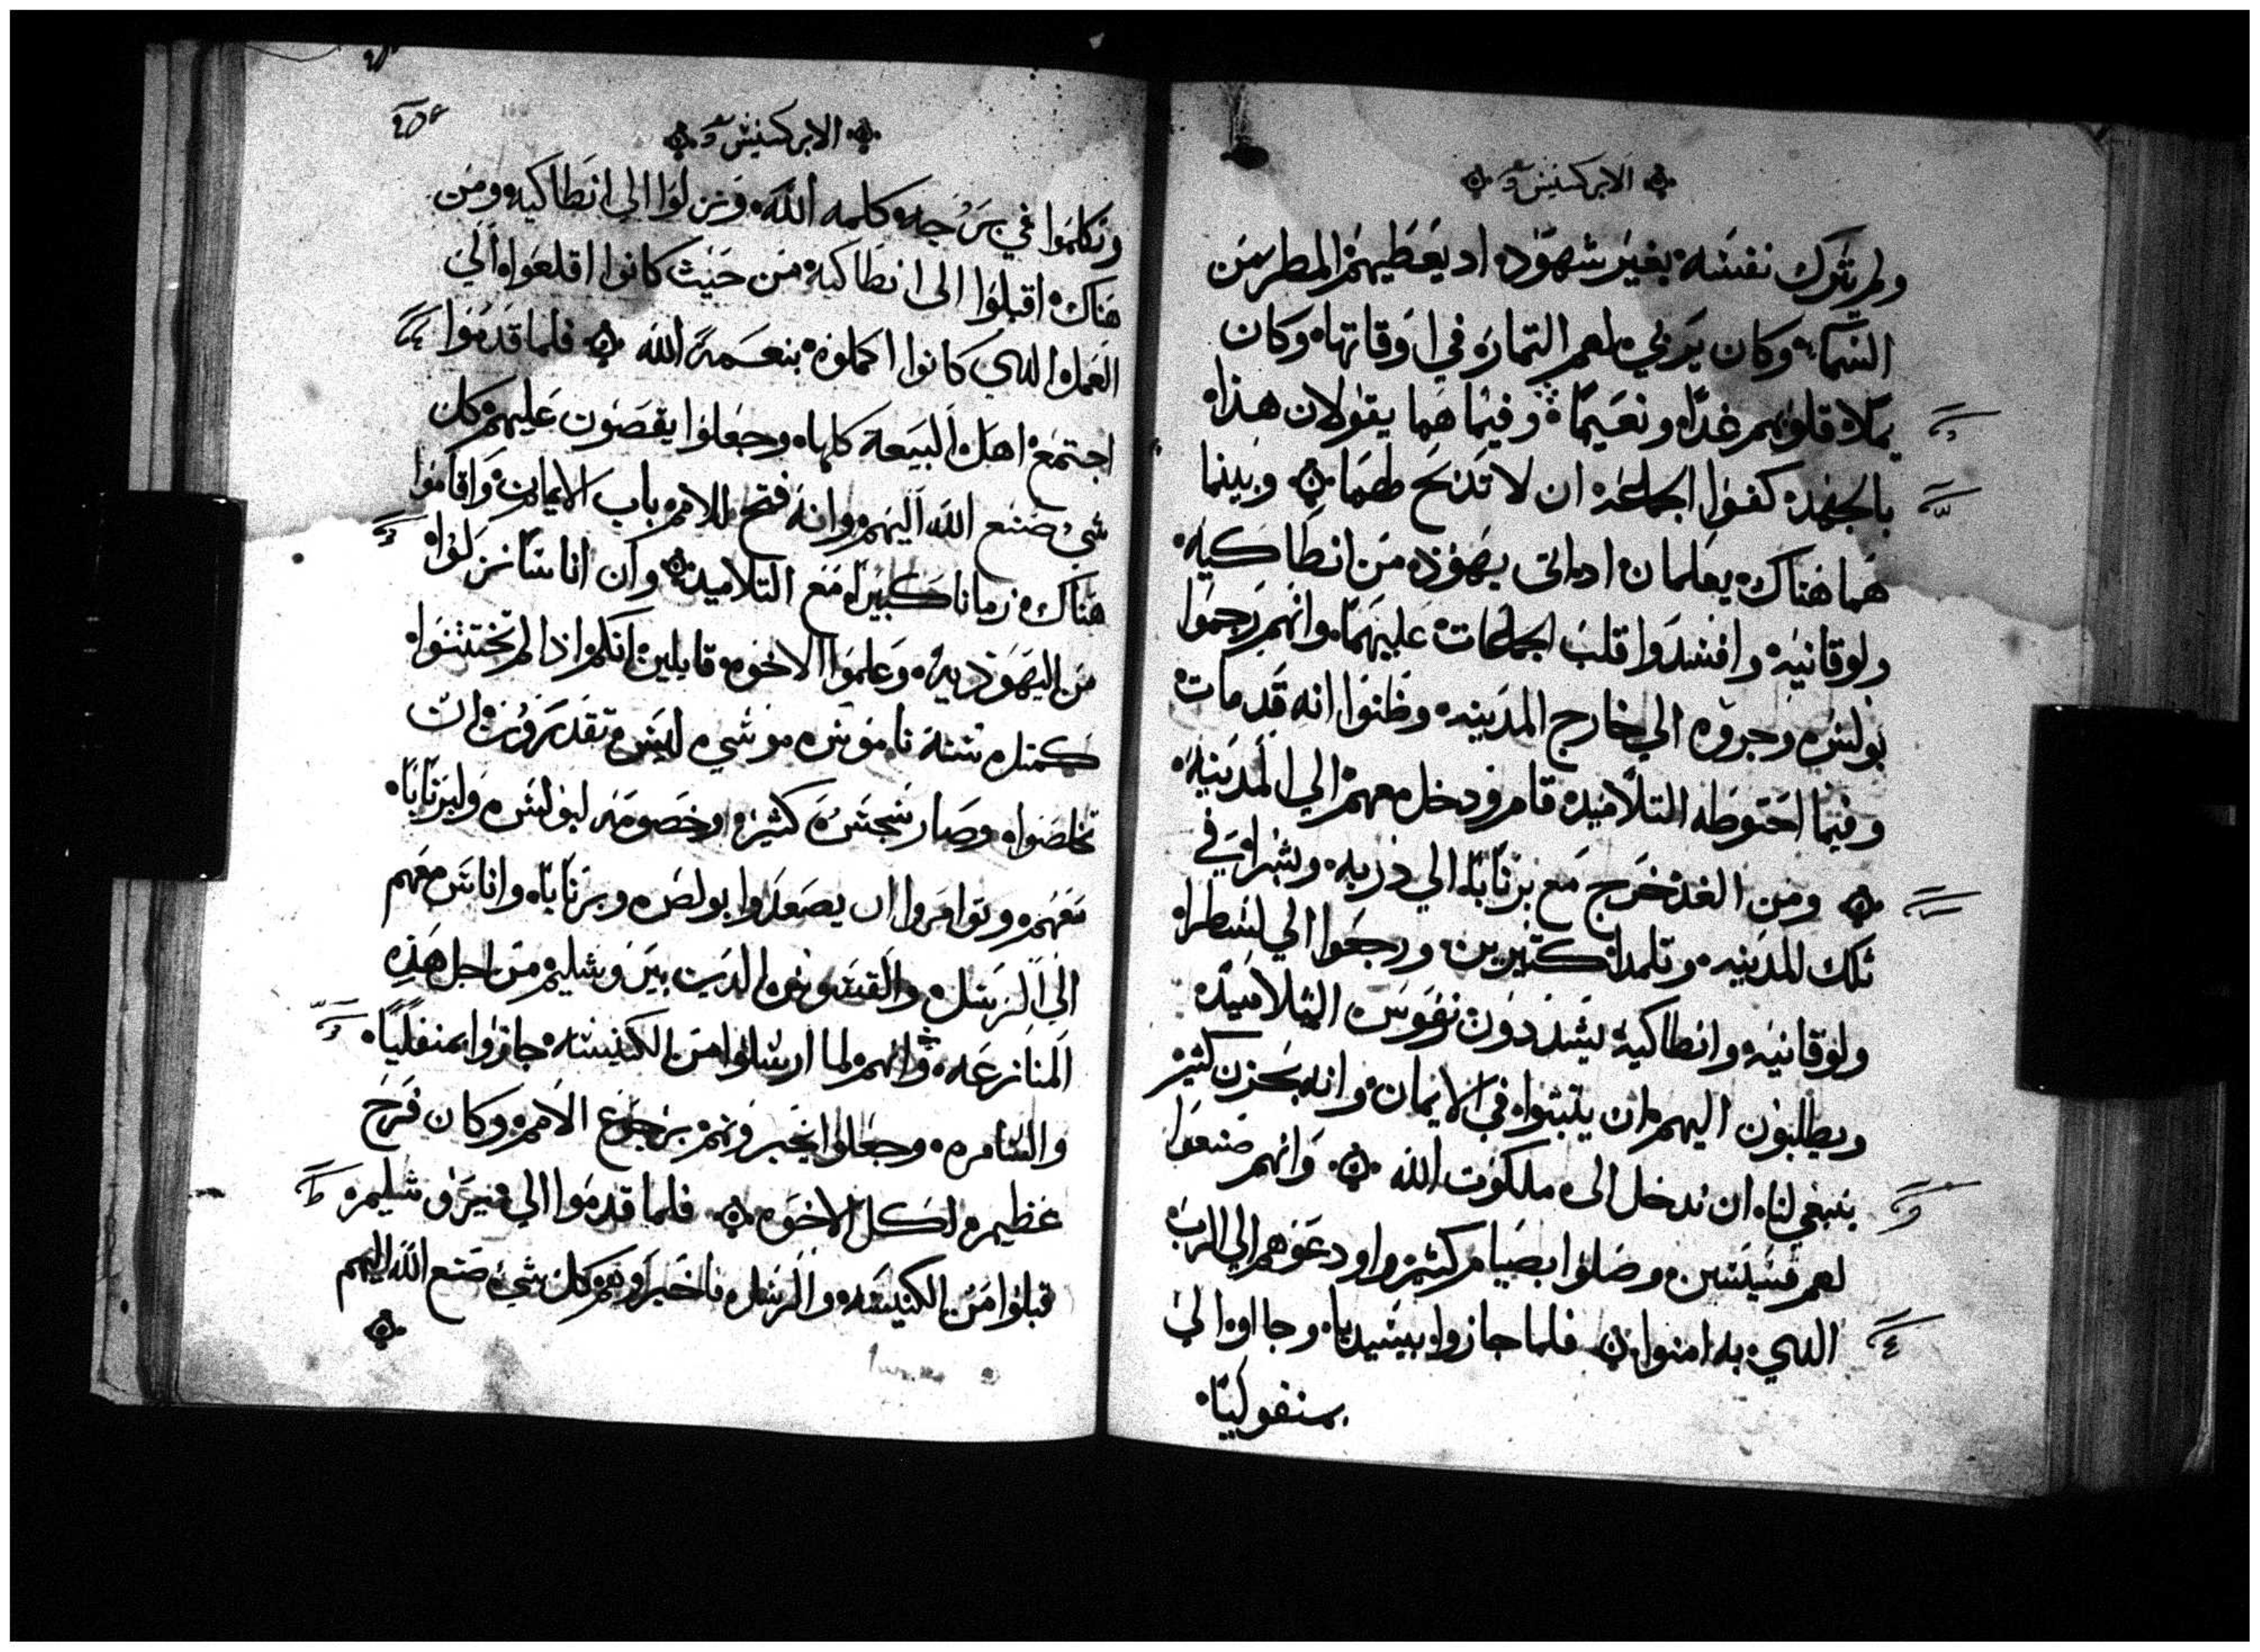 الابركسيس
ولم يترك نفسه بغير شهود اد يعطيهم المطر من
السماء وكان يربي لهم الثمار في اوقاتها وكان
يملا قلوبهم غدا ونعيما وفيما هما يقولان هذا
بالجهد كفوا الجماعه ان لا تدبح لهما وبينما
هما هناك يعلمان اد اتى يهود من انطاكيه
ولوقانيه وافسدوا قلب الجماعات عليهما وانهم رجموا
بولس وجروه الي خارج المدينه وظنوا انه قد مات
وفيما احتوطه التلاميد قام ودخل معهم الي المدينه
ومن الغد خرج مع برنابا الي دربه وبشرا في
تلك المدينه وتلمدا كتيرين ورجعوا الي لسطرا
ولوقانيه وانطاكيه يشددون نفوس التلاميد
ويطلبون اليهم ان يتبتوا في الايمان وانه بحزن كثير
ينبغي لنا ان ندخل الى ملكوت الله وانهم صنعوا
لهم قسيسين وصلوا بصيام كثير واودعوهم الي الرب
الدي به امنوا فلما جازوا بيسيديا وجااوا الي
بمنفوليا
الابركسيس
وتكلموا في برجه كلمه الله ونزلوا الي انطاكيه ومن
هناك اقبلوا الى انطاكية من حيث كانوا اقلعوا الي
العمل الدي كانوا اكملوه بنعمة الله فلما قدموا
اجتمع اهل البيعة كلها وجعلوا يقصون عليهم كل
شي صنع الله اليهم وانه فتح للامم باب الايمان واقاموا
هناك زمانا كبيرا مع التلاميد وان اناسا نزلوا
من اليهوديه وعلموا الاخوه قايلين انكم اذا لم تختتنوا
كمتل سنة ناموس موشي ليس تقدرون ان
تخلصوا وصار سجس كثير وخصومه لبولس ولبرنابا
معهم وتوامروا ان يصعدوا بولص وبرنابا واناس معهم
الي الرسل والقسوس الدين بيروشليم من اجل هذه
المنازعه وانهم لما ارسلوا من الكنيسه جازوا بمنفليا
والسامره وجعلوا يخبرونهم برجوع الامم وكان فرح
عظيم لكل الاخوه فلما قدموا الي يروشليم
قبلوا من الكنيسه والرسل فاخبروهم كل شي صنع الله اليهم